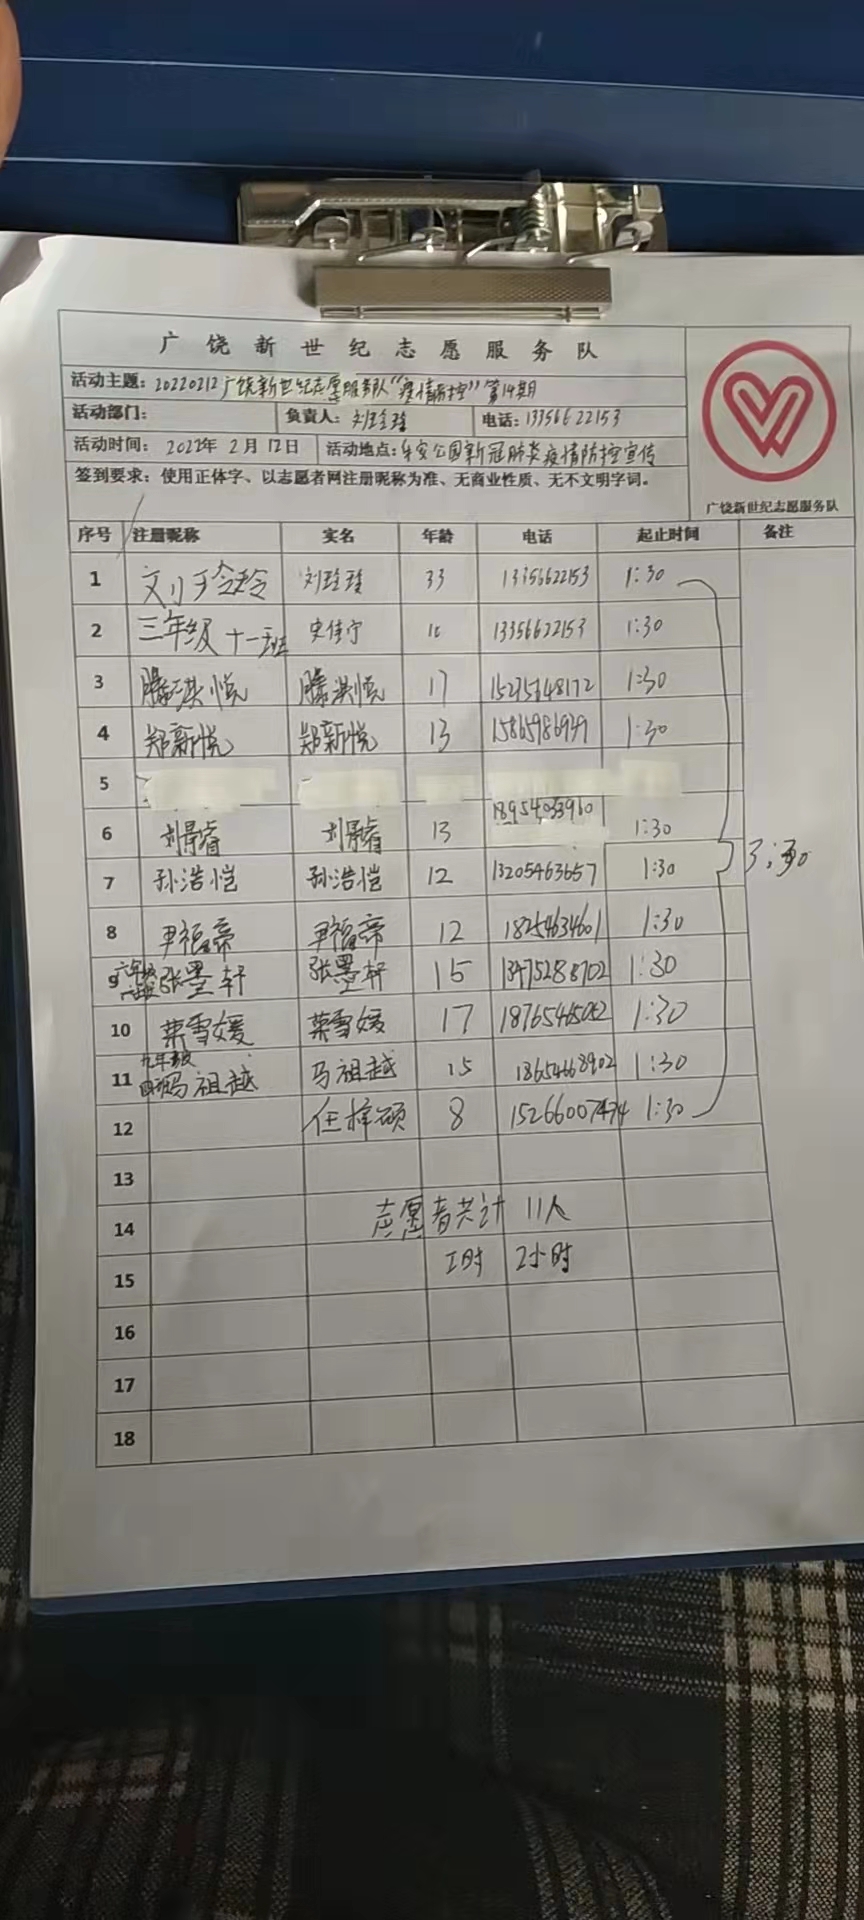 广饶新世纪志愿服务队
活动主题：20220212广饶新世纪志愿服务队“疫情防控”第14期
活动部门： 负责人： 电话：13356622153
活动时间：2022年2月12日 活动地点：乐安公园新冠肺炎疫情防控宣传
签到要求：使用正体字、以志愿者网注册昵称为准、无商业性质、无不文明字词。
广饶新世纪志愿服务队
序号 注册昵称 实名 年龄 电话 起止时间 备注
1 刘玲玲 33 13356622153 1:30
2 三年级十一班 宋佳宁 13356622153 1:30
3 滕淇悦 滕淇悦 17 1:30
4 郑新悦 郑新悦 13 15865986939 1:30
5
6 刘景睿 刘景睿 13 18954053960 1:30
7 孙浩恺 孙浩恺 12 13205463657 1:30 3:30
8 尹福帝 尹福帝 12 18254634601 1:30
9 六年级 张墨轩 张墨轩 15 13475288702 1:30
10 荣雪媛 荣雪媛 17 1:30
11 九年级 马祖越 马祖越 15 18654668902 1:30
12 任梓硕 8 15266007474 1:30
13
14 志愿者共计 11人
15 工时 2小时
16
17
18